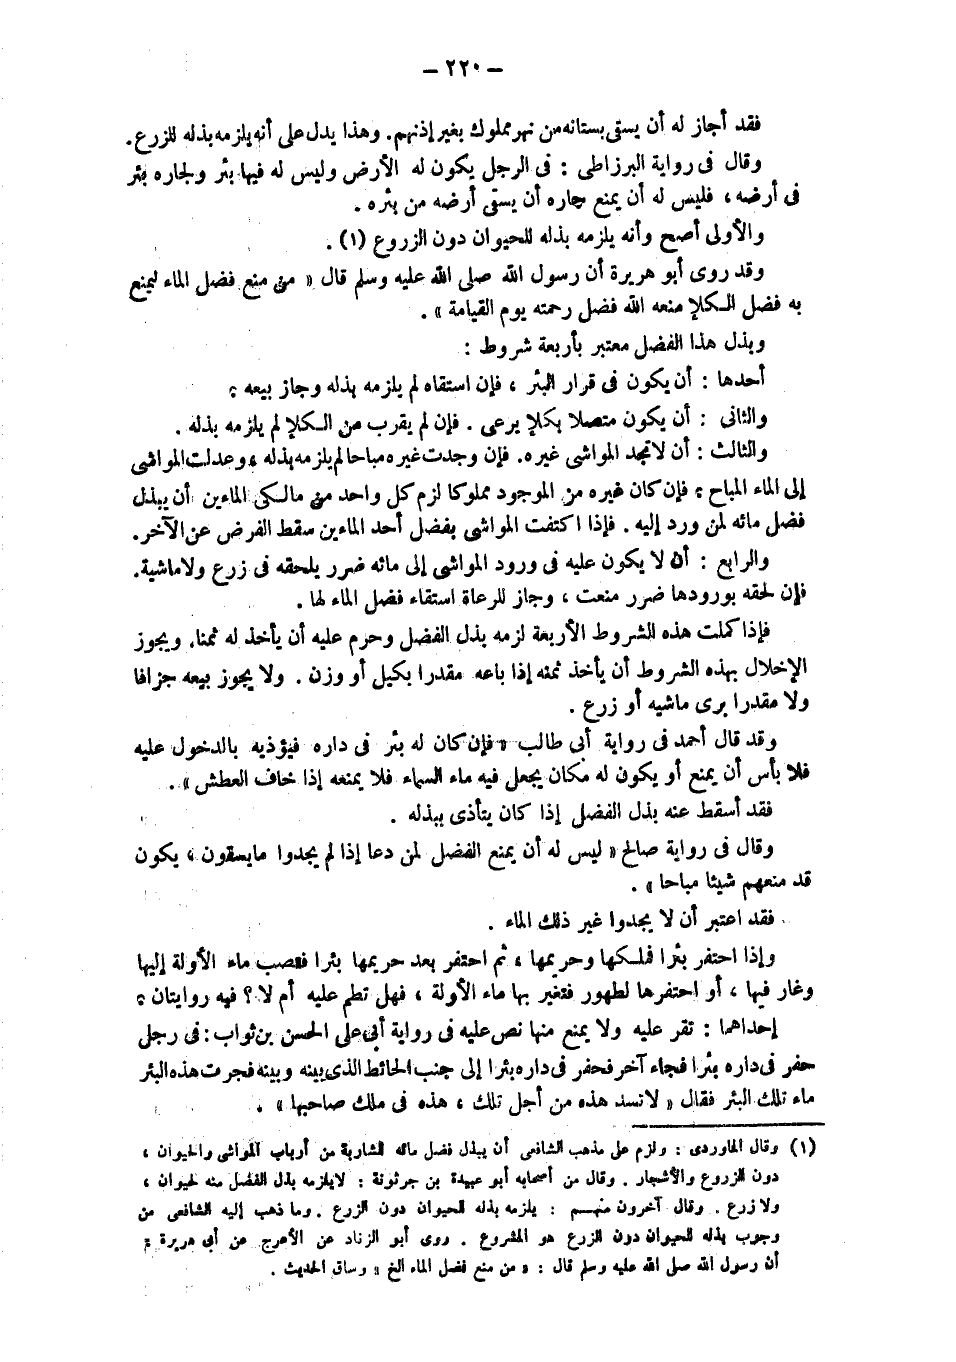 — ٢٢٠ —
فقد أجاز له أن يسقى بستانه من نهر مملوك بغير إذنهم. وهذا يدل على أنه يلزمه بذله للزرع.
وقال فى رواية البرزاطى : فى الرجل يكون له الأرض وليس له فيها بئر ولجاره بئر
فى أرضه ، فليس له أن يمنع جاره أن يسقى أرضه من بئره .
والأولى أصح وأنه يلزمه بذله للحيوان دون الزروع (١) .
وقد روى أبو هريرة أن رسول الله صلى الله عليه وسلم قال « من منع فضل الماء ليمنع
به فضل الكلإ منعه الله فضل رحمته يوم القيامة » .
وبذل هذا الفضل معتبر بأربعة شروط :
أحدها : أن يكون فى قرار البئر ، فإن استقاه لم يلزمه بذله وجاز بيعه ؛
والثانى : أن يكون متصلا بكلإ يرعى . فإن لم يقرب من الكلإ لم يلزمه بذله .
والثالث : أن لا تجد المواشى غيره. فإن وجدت غيره مباحا لم يلزمه بذله ، وعدلت المواشى
إلى الماء المباح ؛ فإن كان غيره من الموجود مملوكا لزم كل واحد من مالكى الماءين أن يبذل
فضل مائه لمن ورد إليه . فإذا اكتفت المواشى بفضل أحد الماءين سقط الفرض عن الآخر.
والرابع : أن لا يكون عليه فى ورود المواشى إلى مائه ضرر يلحقه فى زرع ولا ماشية.
فإن لحقه بورودها ضرر منعت ، وجاز للرعاة استقاء فضل الماء لها .
فإذا كملت هذه الشروط الأربعة لزمه بذل الفضل وحرم عليه أن يأخذ له ثمنا. ويجوز
الإخلال بهذه الشروط أن يأخذ ثمنه إذا باعه مقدرا بكيل أو وزن . ولا يجوز بيعه جزافا
ولا مقدرا برى ماشيه أو زرع .
وقد قال أحمد فى رواية أبى طالب « فإن كان له بئر فى داره فيؤذيه بالدخول عليه
فلا بأس أن يمنع أو يكون له مكان يجعل فيه ماء السماء فلا يمنعه إذا خاف العطش » .
فقد أسقط عنه بذل الفضل إذا كان يتأذى ببذله .
وقال فى رواية صالح « ليس له أن يمنع الفضل لمن دعا إذا لم يجدوا ما يسقون ، يكون
قد منعهم شيئا مباحا » .
فقد اعتبر أن لا يجدوا غير ذلك الماء .
وإذا احتفر بئرا فملكها وحريمها ، ثم احتفر بعد حريمها بئرا فنصب ماء الأولة إليها
وغار فيها ، أو احتفرها لطهور فتغير بها ماء الأولة ، فهل تطم عليه أم لا ؟ فيه روايتان ؛
إحداهما : تقر عليه ولا يمنع منها نص عليه فى رواية أبى على الحسن بن ثواب : فى رجل
حفر فى داره بئرا فجاء آخر فحفر فى داره بئرا إلى جنب الحائط الذى بينه وبينه فجرت هذه البئر
ماء تلك البئر فقال « لا تسد هذه من أجل تلك ، هذه فى ملك صاحبها » .
(١) وقال الماوردى : ولزم على مذهب الشافعى أن يبذل فضل مائه للشاربة من أرباب المواشى والحيوان ،
دون الزروع والأشجار . وقال من أصحابه أبو عبيدة بن جرثونة : لا يلزمه بذل الفضل منه لحيوان ،
ولا زرع . وقال آخرون منهم : يلزمه بذله للحيوان دون الزرع . وما ذهب إليه الشافعى من
وجوب بذله للحيوان دون الزرع هو المشروع . روى أبو الزناد عن الأعرج عن أبى هريرة :
أن رسول الله صلى الله عليه وسلم قال : « من منع فضل الماء الخ » وساق الحديث .